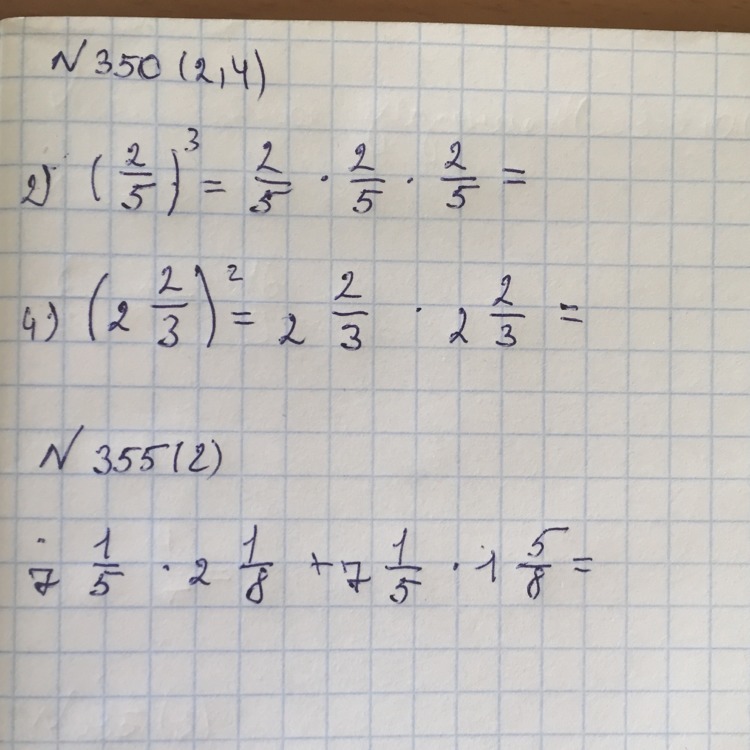 N 350 (2,4)
2) (2/5)³ = 2/5 · 2/5 · 2/5 =
4) (2 2/3)² = 2 2/3 · 2 2/3 =
N 355 (2)
7 1/5 · 2 1/8 + 7 1/5 · 1 5/8 =